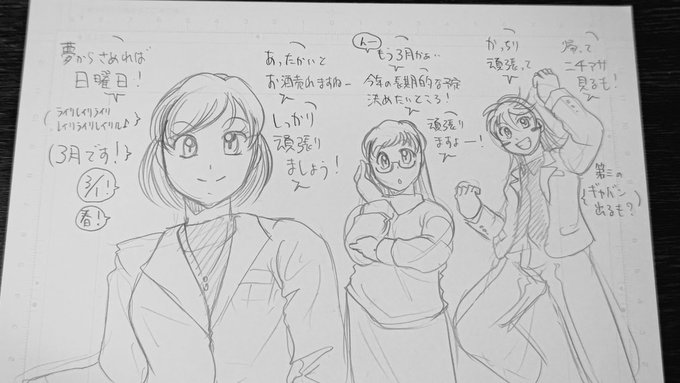 夢からさめれば
日曜日!
(ライリレイリライリ
レイリライレイリル♪)
(3月です!)
3/1!
春!
あったかいと
お酒売れますねー
しっかり
頑張り
ましょう!
んー
もう3月かぁ…
今年の長期的な予定
決めたいところ!
頑張り
ますよー!
がっちり
頑張って
帰って
ニチアサ
見るも!
第三の
ギャバン
出るも?